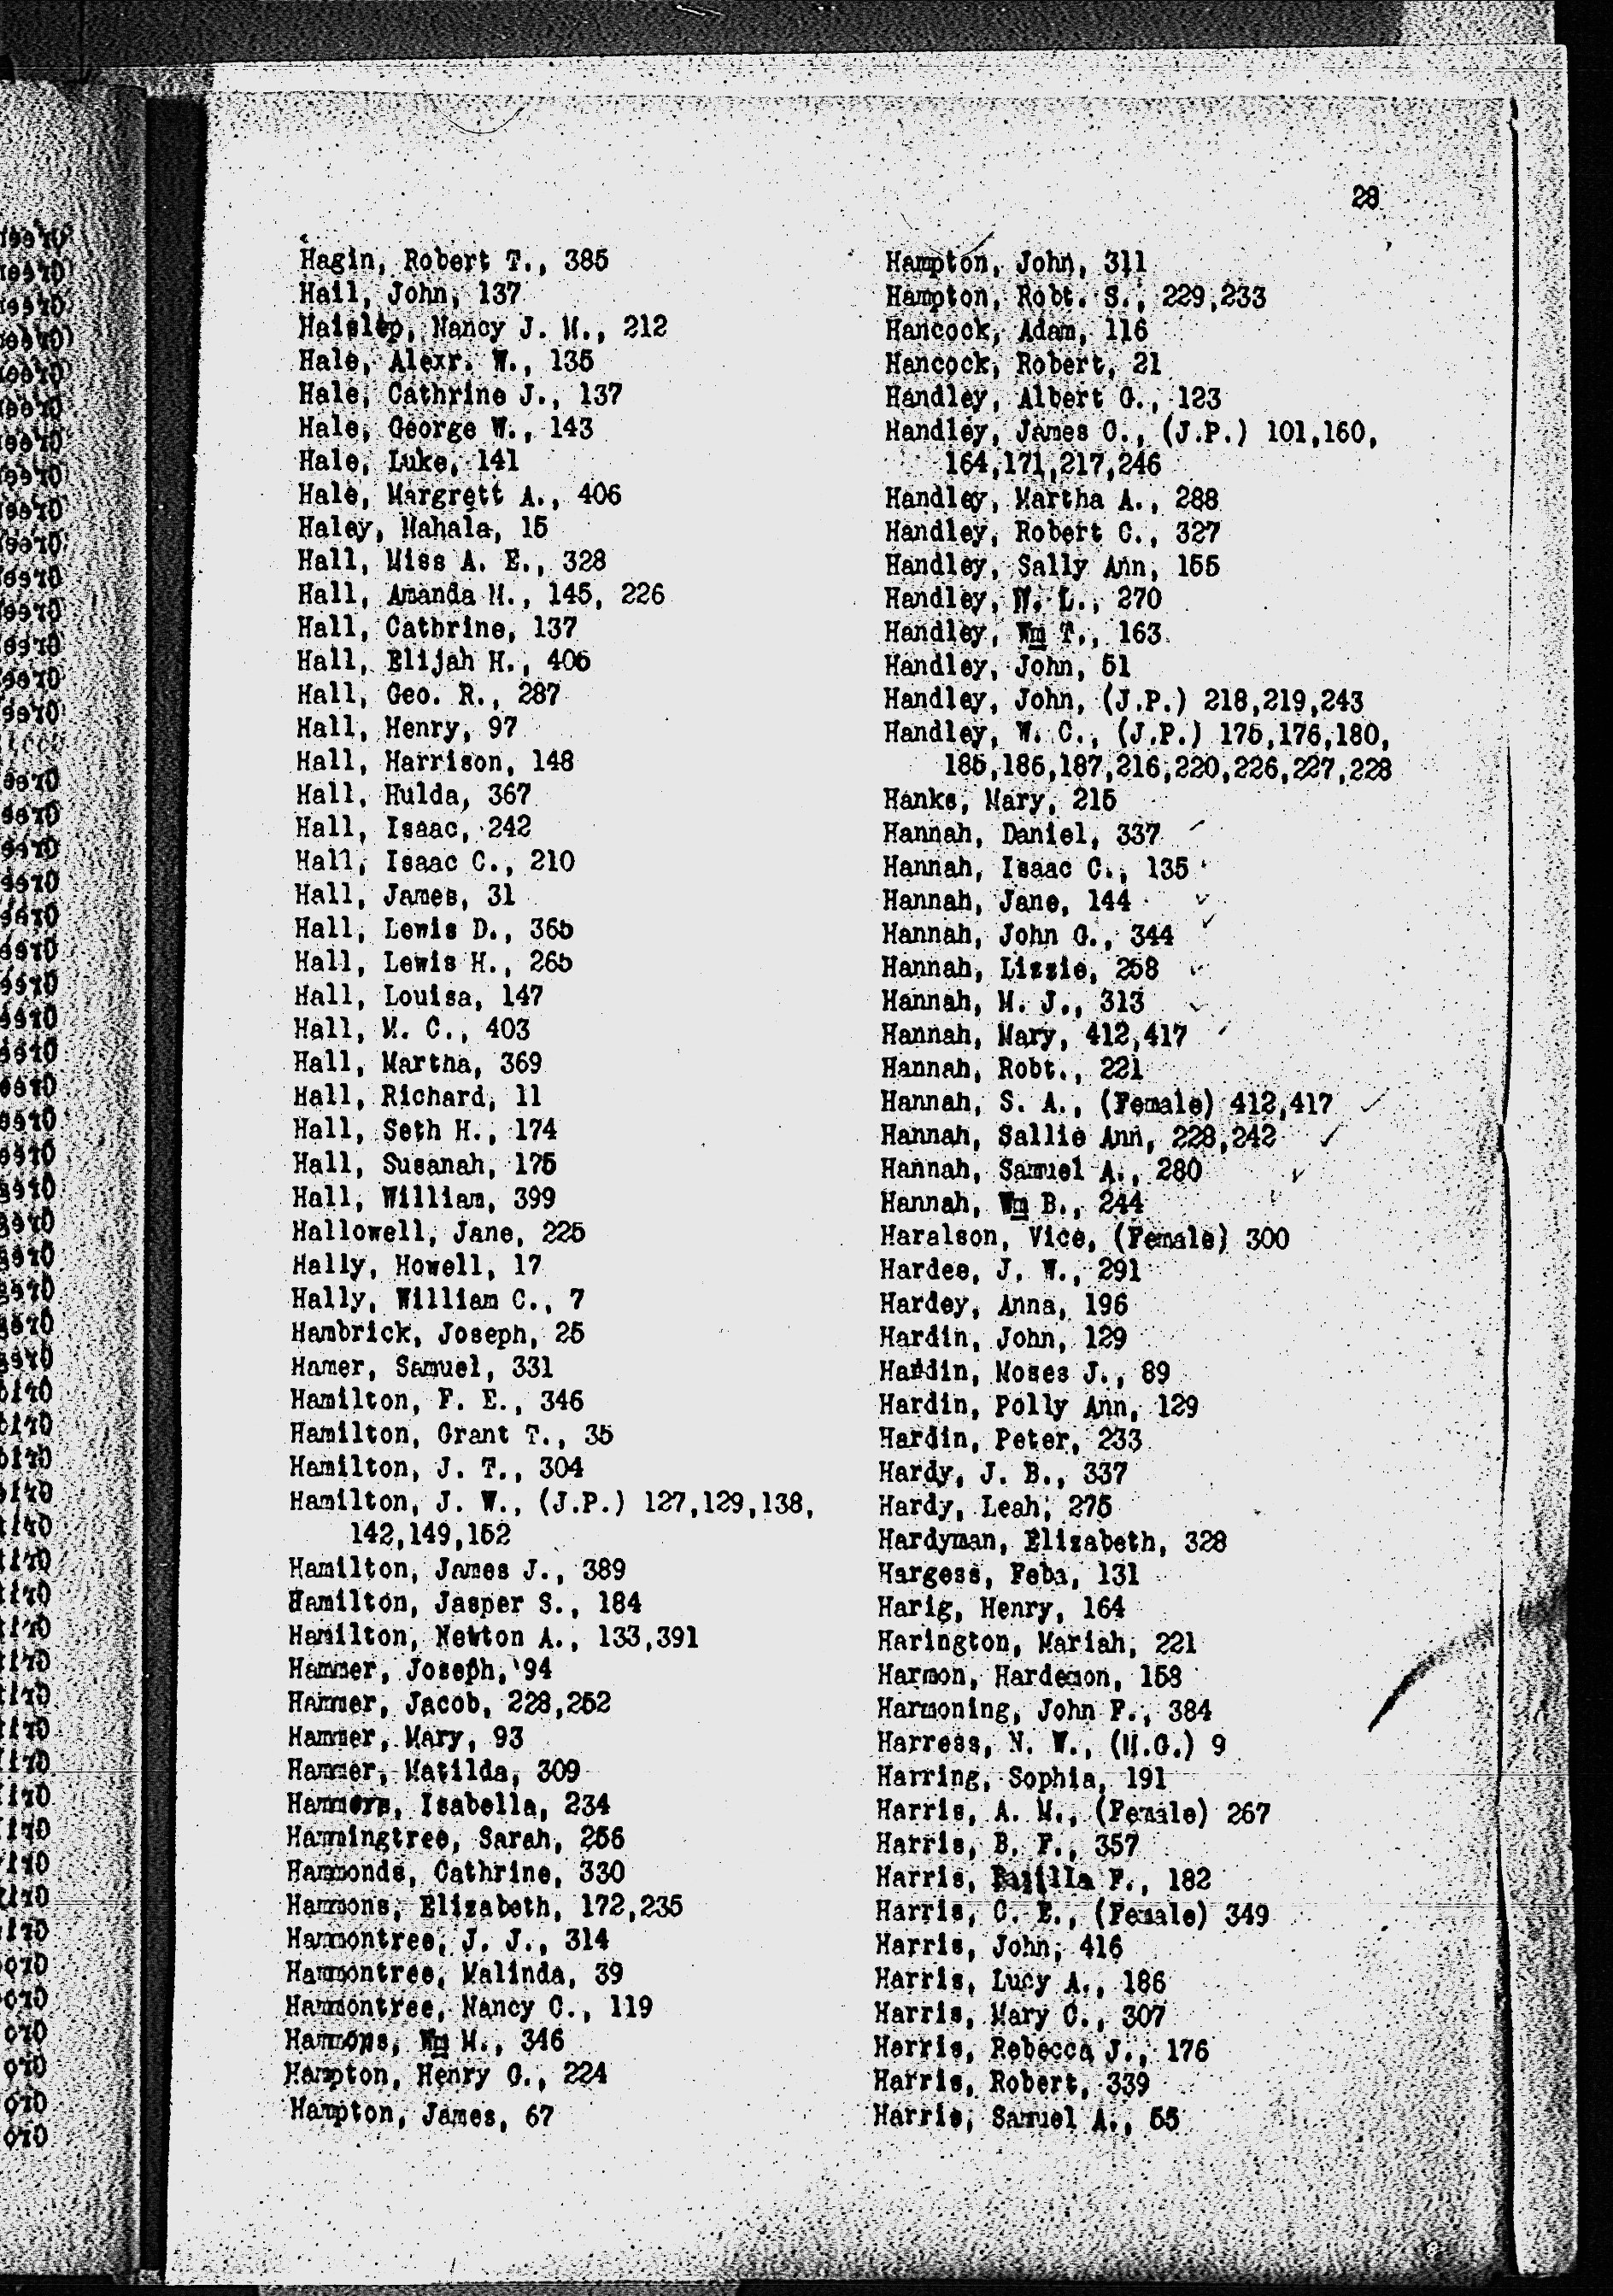 28
Hagin, Robert T., 385
Hail, John, 137
Haislep, Nancy J. M., 212
Hale, Alexr. W., 135
Hale, Cathrine J., 137
Hale, George W., 143
Hale, Luke, 141
Hale, Margrett A., 406
Haley, Mahala, 15
Hall, Miss A. E., 328
Hall, Amanda M., 145, 226
Hall, Cathrine, 137
Hall, Elijah H., 405
Hall, Geo. R., 287
Hall, Henry, 97
Hall, Harrison, 148
Hall, Hulda, 367
Hall, Isaac, 242
Hall, Isaac C., 210
Hall, James, 31
Hall, Lewis D., 365
Hall, Lewis H., 265
Hall, Louisa, 147
Hall, M. C., 403
Hall, Martha, 369
Hall, Richard, 11
Hall, Seth H., 174
Hall, Susanah, 175
Hall, William, 399
Hallowell, Jane, 225
Hally, Howell, 17
Hally, William C., 7
Hambrick, Joseph, 25
Hamer, Samuel, 331
Hamilton, F. E., 346
Hamilton, Grant T., 35
Hamilton, J. T., 304
Hamilton, J. W., (J.P.) 127,129,138,
142,149,152
Hamilton, James J., 389
Hamilton, Jasper S., 184
Hamilton, Newton A., 133,391
Hammer, Joseph, 94
Hammer, Jacob, 228,252
Hammer, Mary, 93
Hammer, Matilda, 309
Hammers, Isabella, 234
Hammingtree, Sarah, 256
Hammonds, Cathrine, 330
Hammons, Elizabeth, 172,235
Hammontree, J. J., 314
Hammontree, Malinda, 39
Hammontree, Nancy C., 119
Hammons, Wm M., 346
Hampton, Henry G., 224
Hampton, James, 67
Hampton, John, 311
Hampton, Robt. S., 229,233
Hancock, Adam, 116
Hancock, Robert, 21
Handley, Albert G., 123
Handley, James O., (J.P.) 101,160,
164,171,217,246
Handley, Martha A., 288
Handley, Robert C., 327
Handley, Sally Ann, 155
Handley, W. L., 270
Handley, Wm T., 163
Handley, John, 51
Handley, John, (J.P.) 218,219,243
Handley, W. C., (J.P.) 175,176,180,
185,186,187,216,220,226,227,228
Hanke, Mary, 215
Hannah, Daniel, 337
Hannah, Isaac C., 135
Hannah, Jane, 144
Hannah, John G., 344
Hannah, Lizzie, 258
Hannah, M. J., 313
Hannah, Mary, 412,417
Hannah, Robt., 221
Hannah, S. A., (Female) 412,417
Hannah, Sallie Ann, 228,242
Hannah, Samuel A., 280
Hannah, Wm B., 244
Haralson, Vice, (Female) 300
Hardee, J. W., 291
Hardey, Anna, 196
Hardin, John, 129
Hardin, Moses J., 89
Hardin, Polly Ann, 129
Hardin, Peter, 233
Hardy, J. B., 337
Hardy, Leah, 275
Hardyman, Elizabeth, 328
Hargess, Feba, 131
Harig, Henry, 164
Harington, Mariah, 221
Harmon, Hardemon, 158
Harmoning, John F., 384
Harress, N. W., (M.G.) 9
Harring, Sophia, 191
Harris, A. M., (Female) 267
Harris, B. F., 357
Harris, F., 182
Harris, C. E., (Female) 349
Harris, John, 416
Harris, Lucy A., 186
Harris, Mary C., 307
Harris, Rebecca J., 176
Harris, Robert, 339
Harris, Samuel A., 55